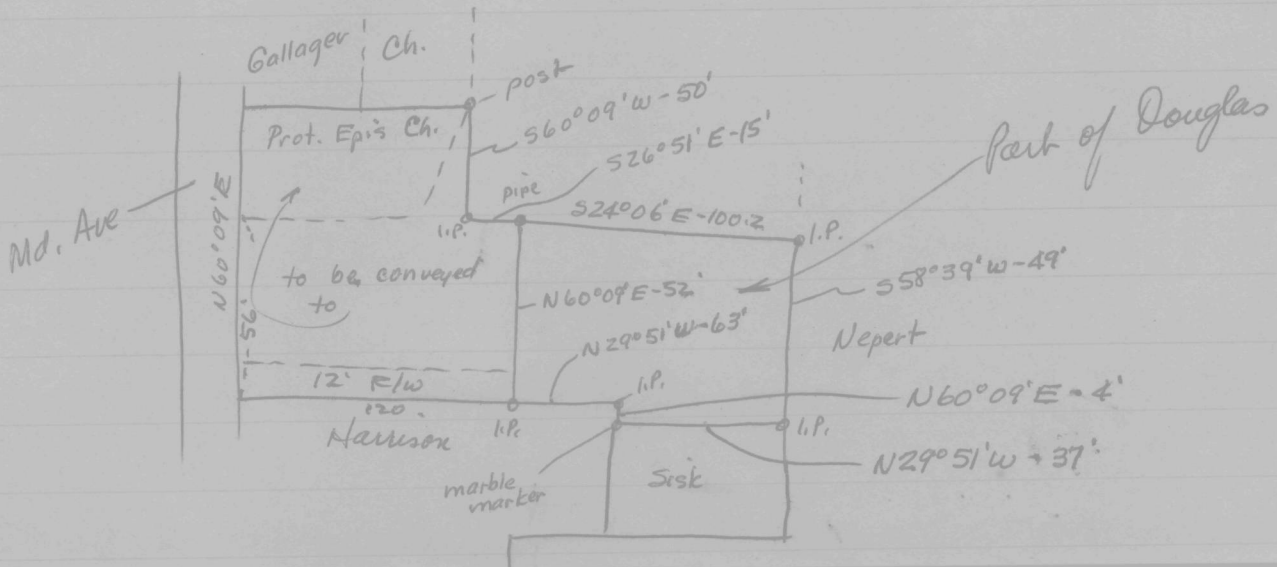 Gallager Ch.
post
Prot. Epis Ch.
S60°09'W-50'
S26°51'E-15'
Part of Douglas
Md. Ave
N60°09'E
-59.5'-
pipe
S24°06'E-100.2
I.P.
I.P.
to be conveyed
to
N60°09'E-52'
S58°39'W-49'
N29°51'W-63'
Nepert
12' R/W
120.
I.P.
I.P.
N60°09'E-4'
Harrison
I.P.
N29°51'W-37'
marble
marker
Sisk